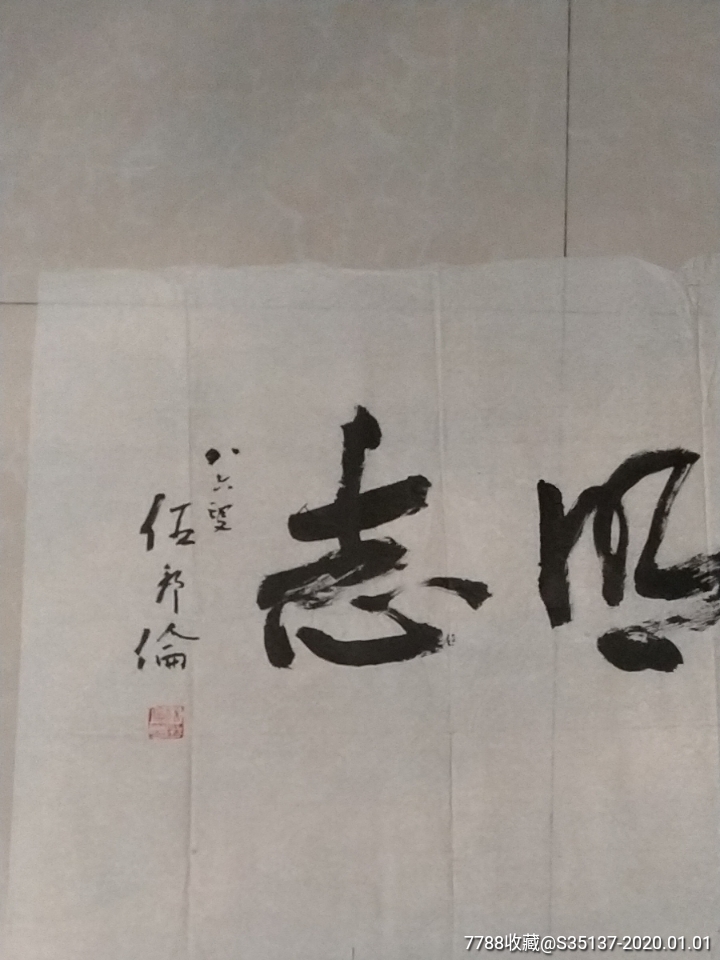 明志
八六叟
伍邦倫
7788收藏@S35137-2020.01.01